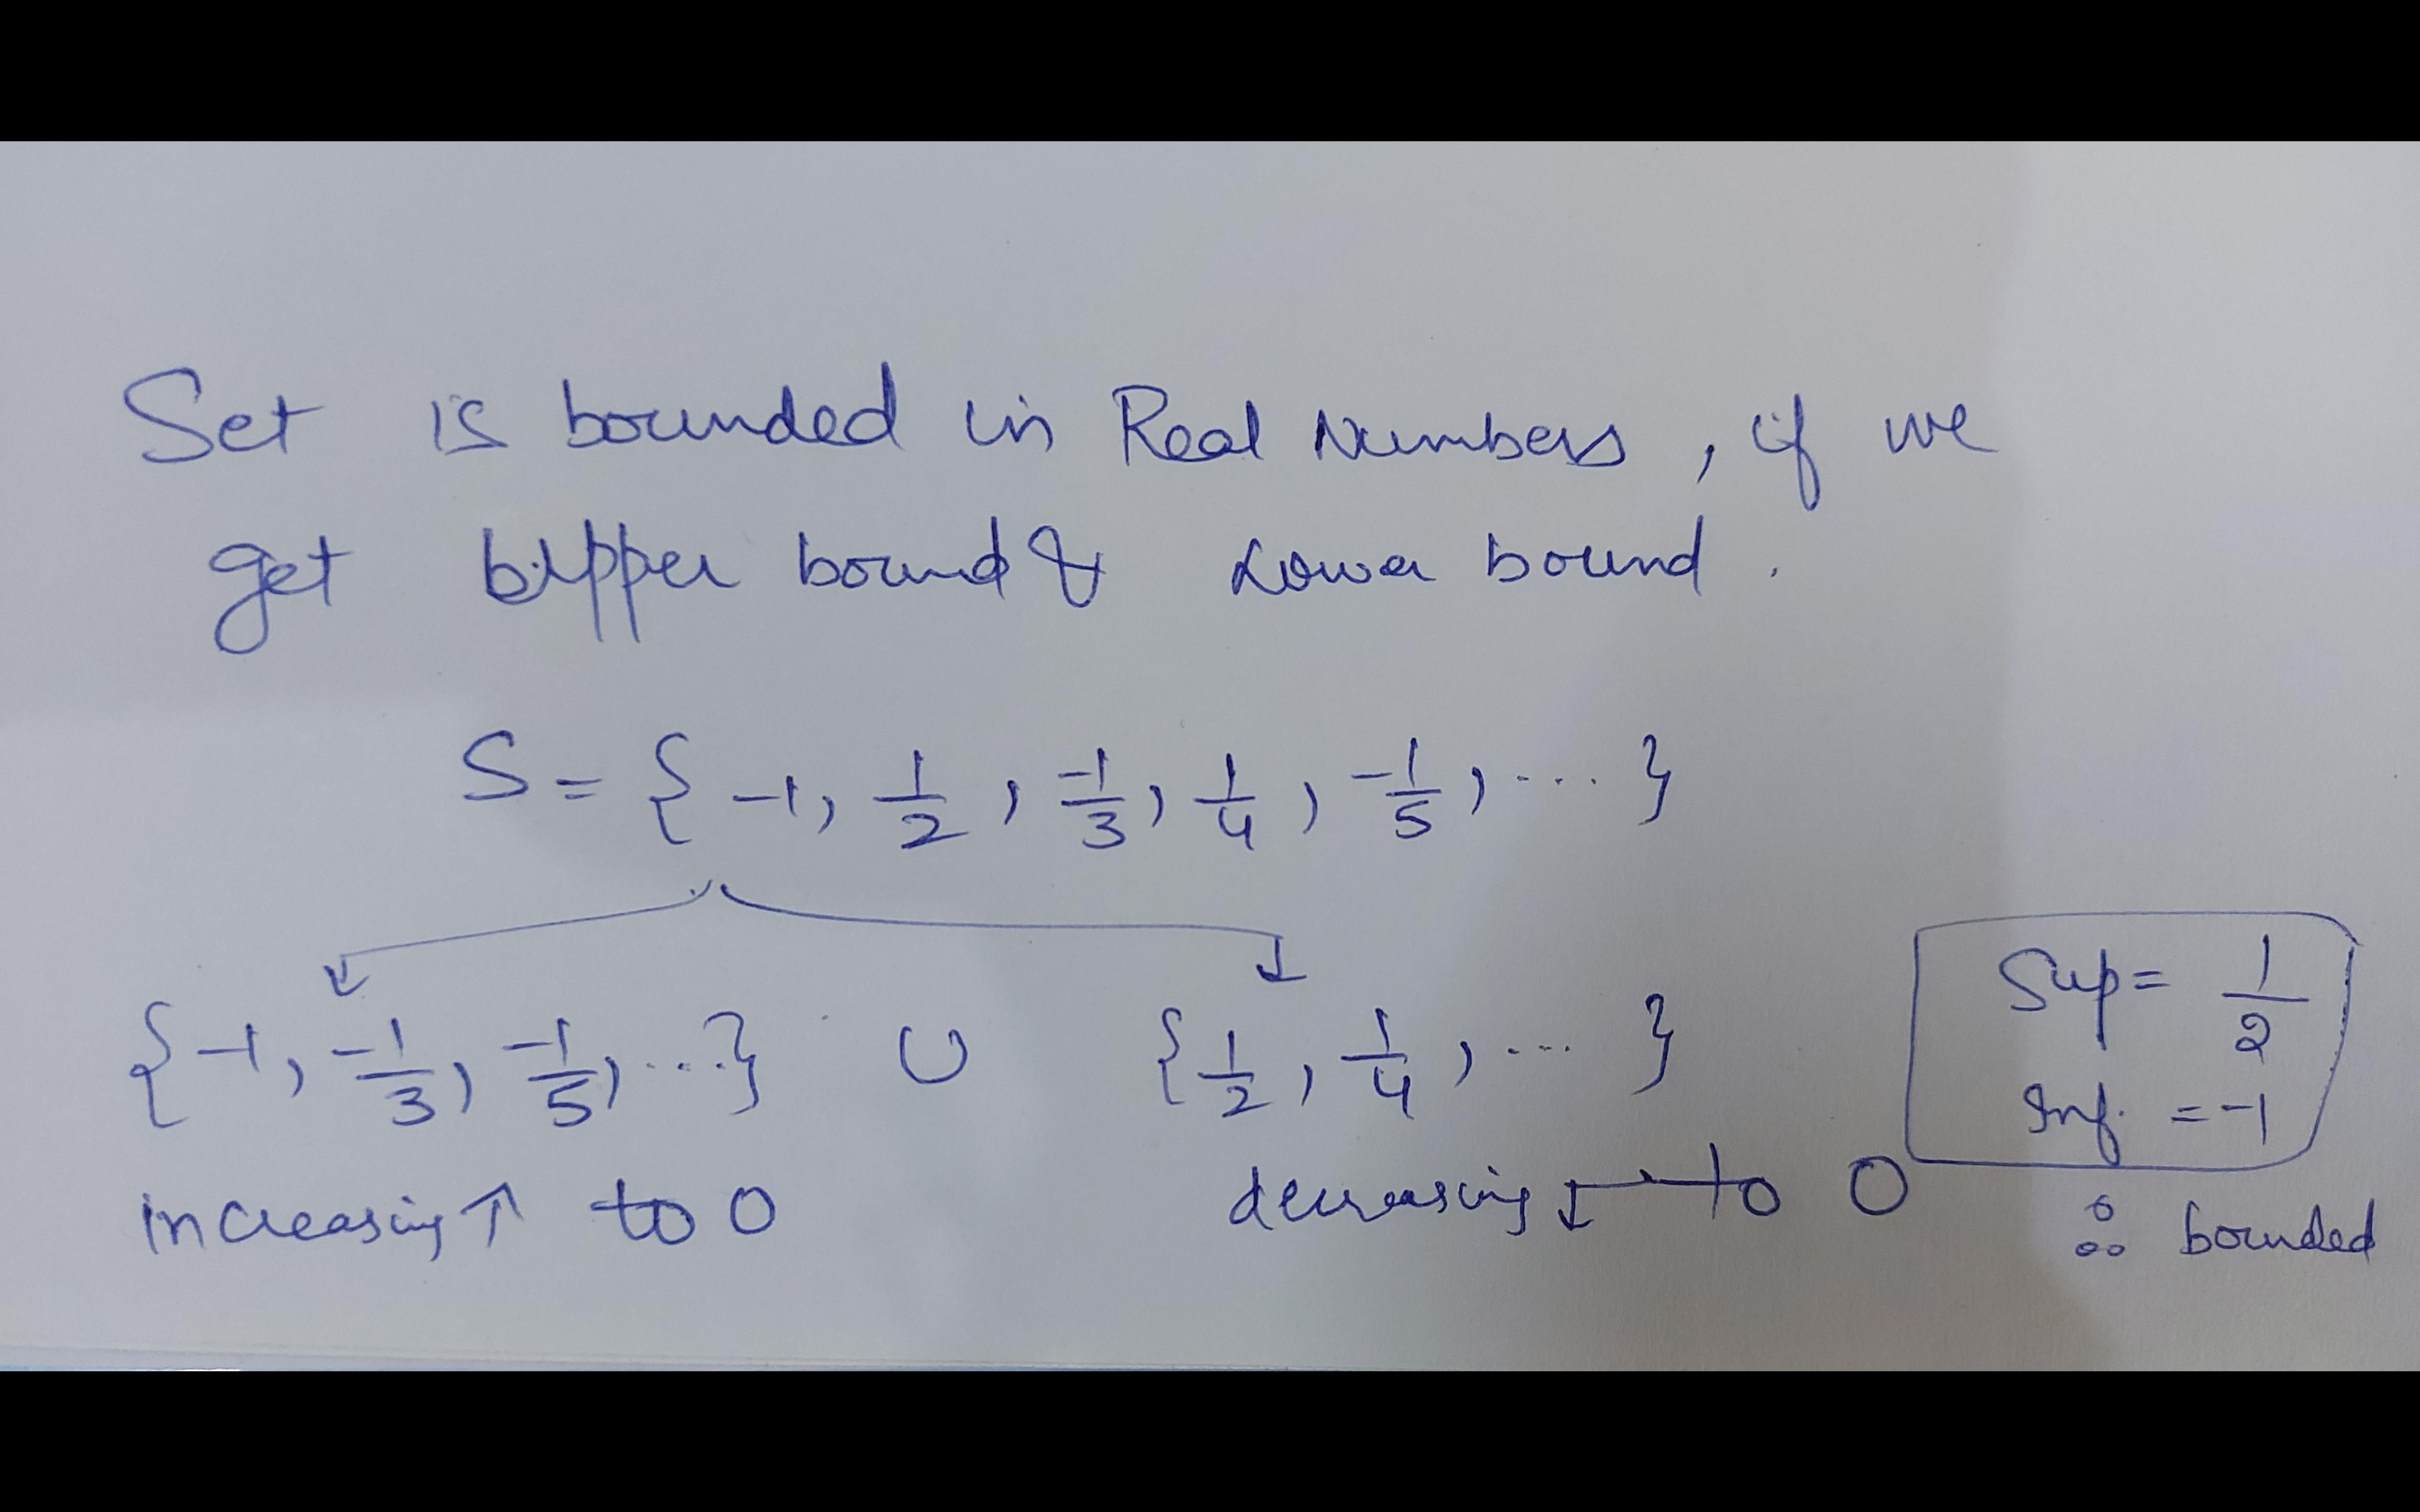 Set is bounded in Real Numbers, if we
get upper bound & Lower bound.
S = { -1, 1/2, -1/3, 1/4, -1/5, ... }
{-1, -1/3, -1/5, ...} ∪ {1/2, 1/4, ... }
increasing ↑ to 0
decreasing ↓ to 0
Sup = 1/2
Inf. = -1
∴ bounded